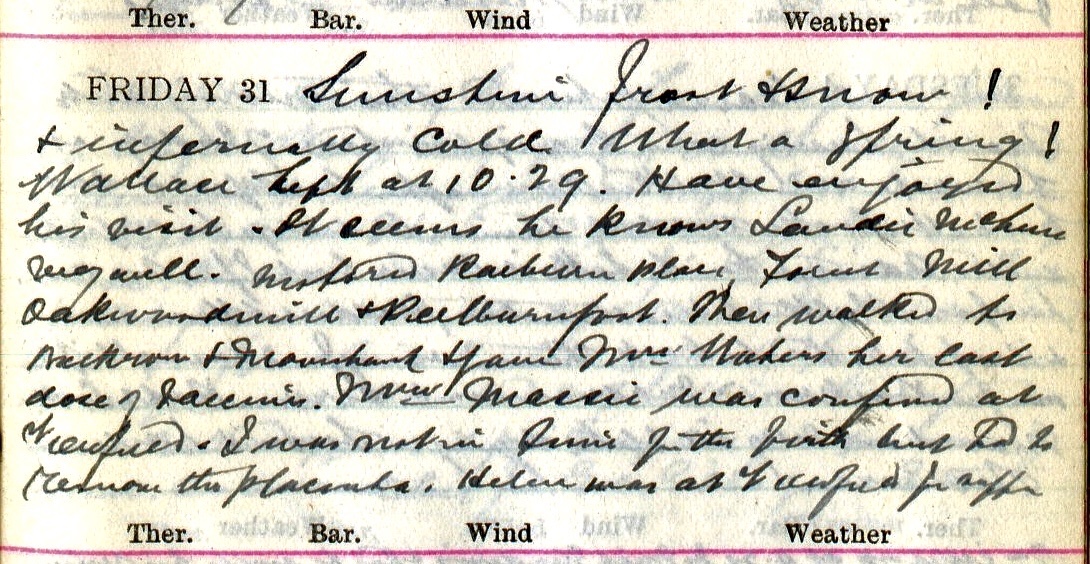 Ther. Bar. Wind Weather
FRIDAY 31 Sunshine Frost & Snow !
& infernally Cold. What a Spring !
Wallace left at 10.29. Have enjoyed
his visit. It seems he knows
very well. Motored Raeburn Place, Mill
Oakwoodmill & Peelburnfoot. Then walked to
& & gave Mrs Waters her last
dose of Vaccine. Mrs Massie was confined at
. I was not in time for the birth but had to
remove the placenta. Helen was at for
Ther. Bar. Wind Weather